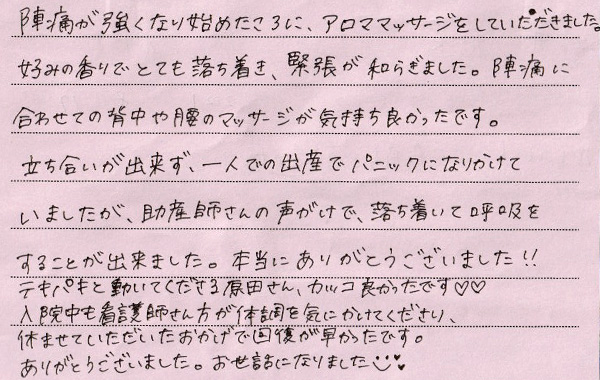 陣痛が強くなり始めたころに、アロママッサージをしていただきました。
好みの香りでとても落ち着き、緊張が和らぎました。陣痛に
合わせての背中や腰のマッサージが気持ち良かったです。
立ち合いが出来ず、一人での出産でパニックになりかけて
いましたが、助産師さんの声がけで、落ち着いて呼吸を
することが出来ました。本当にありがとうございました!!
テキパキと動いてくださる原田さん、カッコ良かったです♡♡
入院中も看護師さん方が体調を気にかけてくださり、
休ませていただいたおかげで回復が早かったです。
ありがとうございました。お世話になりました